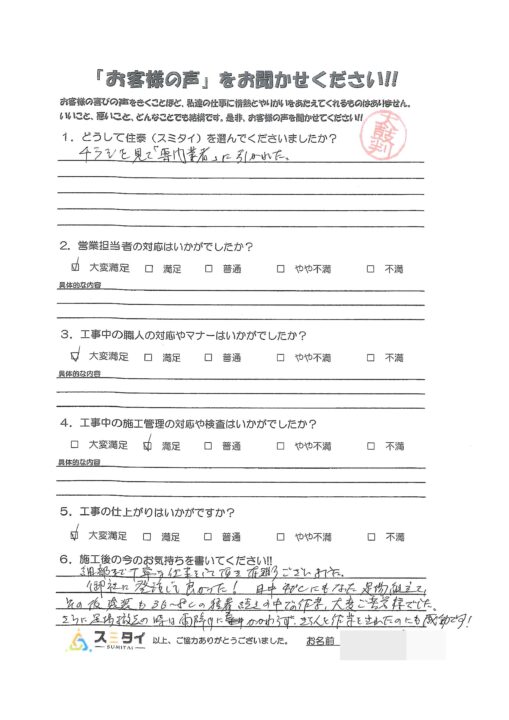 「お客様の声」をお聞かせください!!
お客様の喜びの声をきくことほど、私達の仕事に情熱とやりがいをあたえてくれるものはありません。
いいこと、悪いこと、どんなことでも結構です。是非、お客様の声を聞かせてください!!
1．どうして住泰（スミタイ）を選んでくださいましたか？
チラシを見て「専門業者」に引かれた。
2．営業担当者の対応はいかがでしたか？
☑ 大変満足 □ 満足 □ 普通 □ やや不満 □ 不満
具体的な内容
3．工事中の職人の対応やマナーはいかがでしたか？
☑ 大変満足 □ 満足 □ 普通 □ やや不満 □ 不満
具体的な内容
4．工事中の施工管理の対応や検査はいかがでしたか？
□ 大変満足 ☑ 満足 □ 普通 □ やや不満 □ 不満
具体的な内容
5．工事の仕上がりはいかがですか？
☑ 大変満足 □ 満足 □ 普通 □ やや不満 □ 不満
6．施工後の今のお気持ちを書いてください!!
細部まで丁寧な仕事をして頂き有難うございました。
御社に発注して良かった！ 日中 にもなる 足場組立て、
その後塗装も の猛暑 の中での作業、大変ご苦労様でした。
さらに足場撤去の時は雨降りにもかかわらず、きちんと作業をされたのにも感動です！
スミタイ
SUMITAI
以上、ご協力ありがとうございました。 お名前